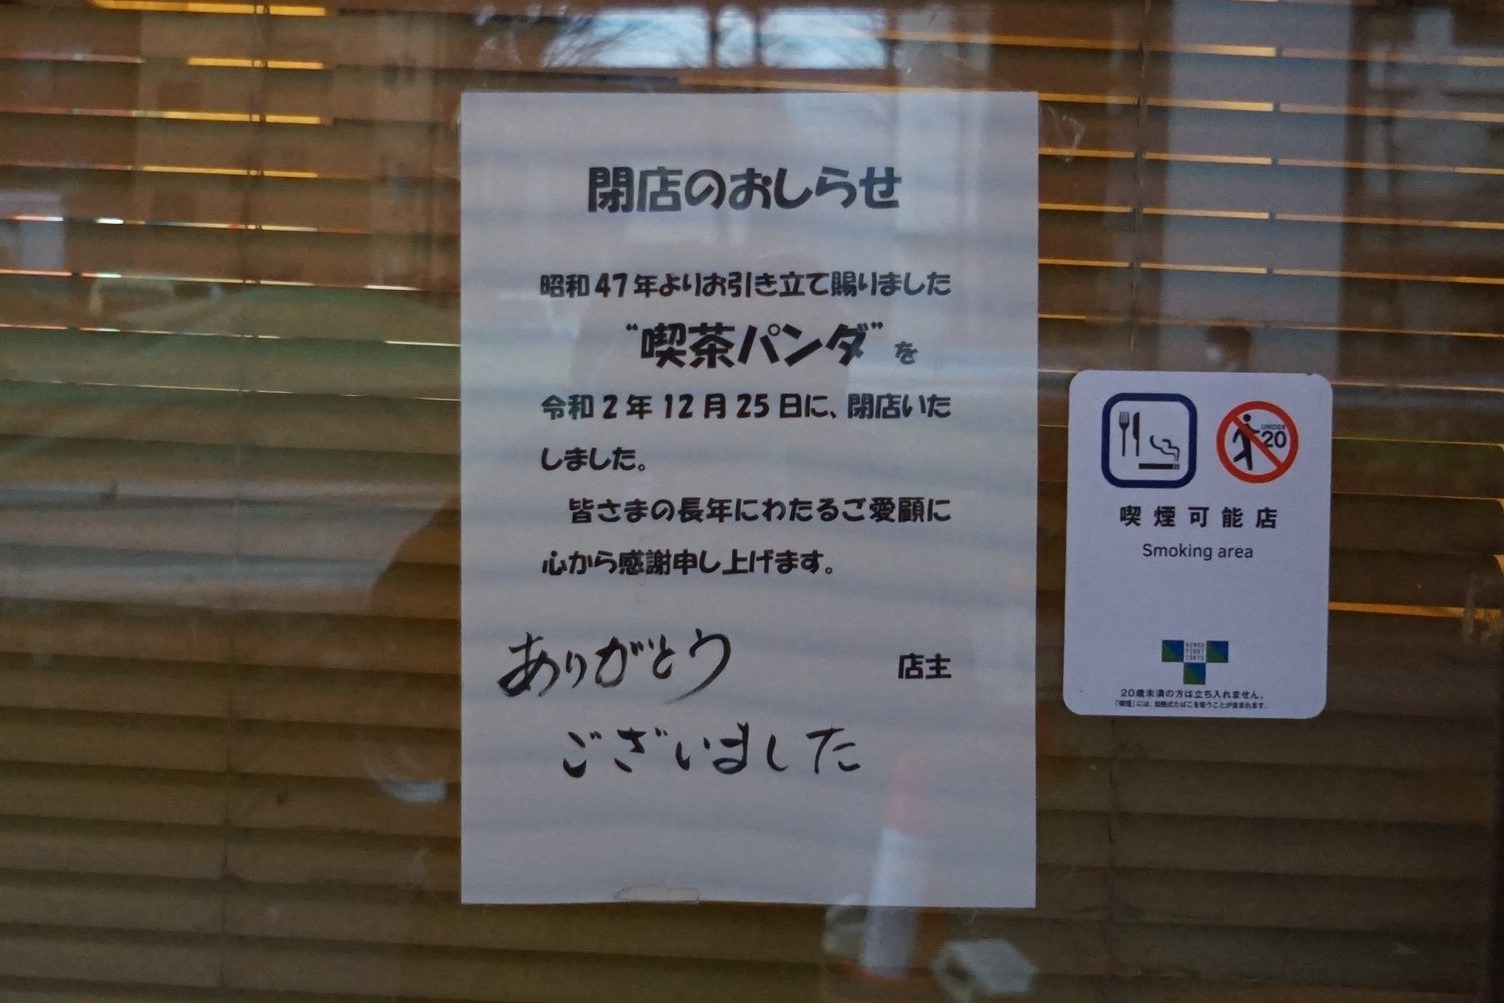 閉店のおしらせ
昭和47年よりお引き立て賜りました
“喫茶パンダ”を
令和2年12月25日に、閉店いた
しました。
皆さまの長年にわたるご愛顧に
心から感謝申し上げます。
店主
ありがとう
ございました
UNDER
20
喫煙可能店
Smoking area
20歳未満の方は立ち入れません。
「喫煙」には、加熱式たばこを吸うことが含まれます。